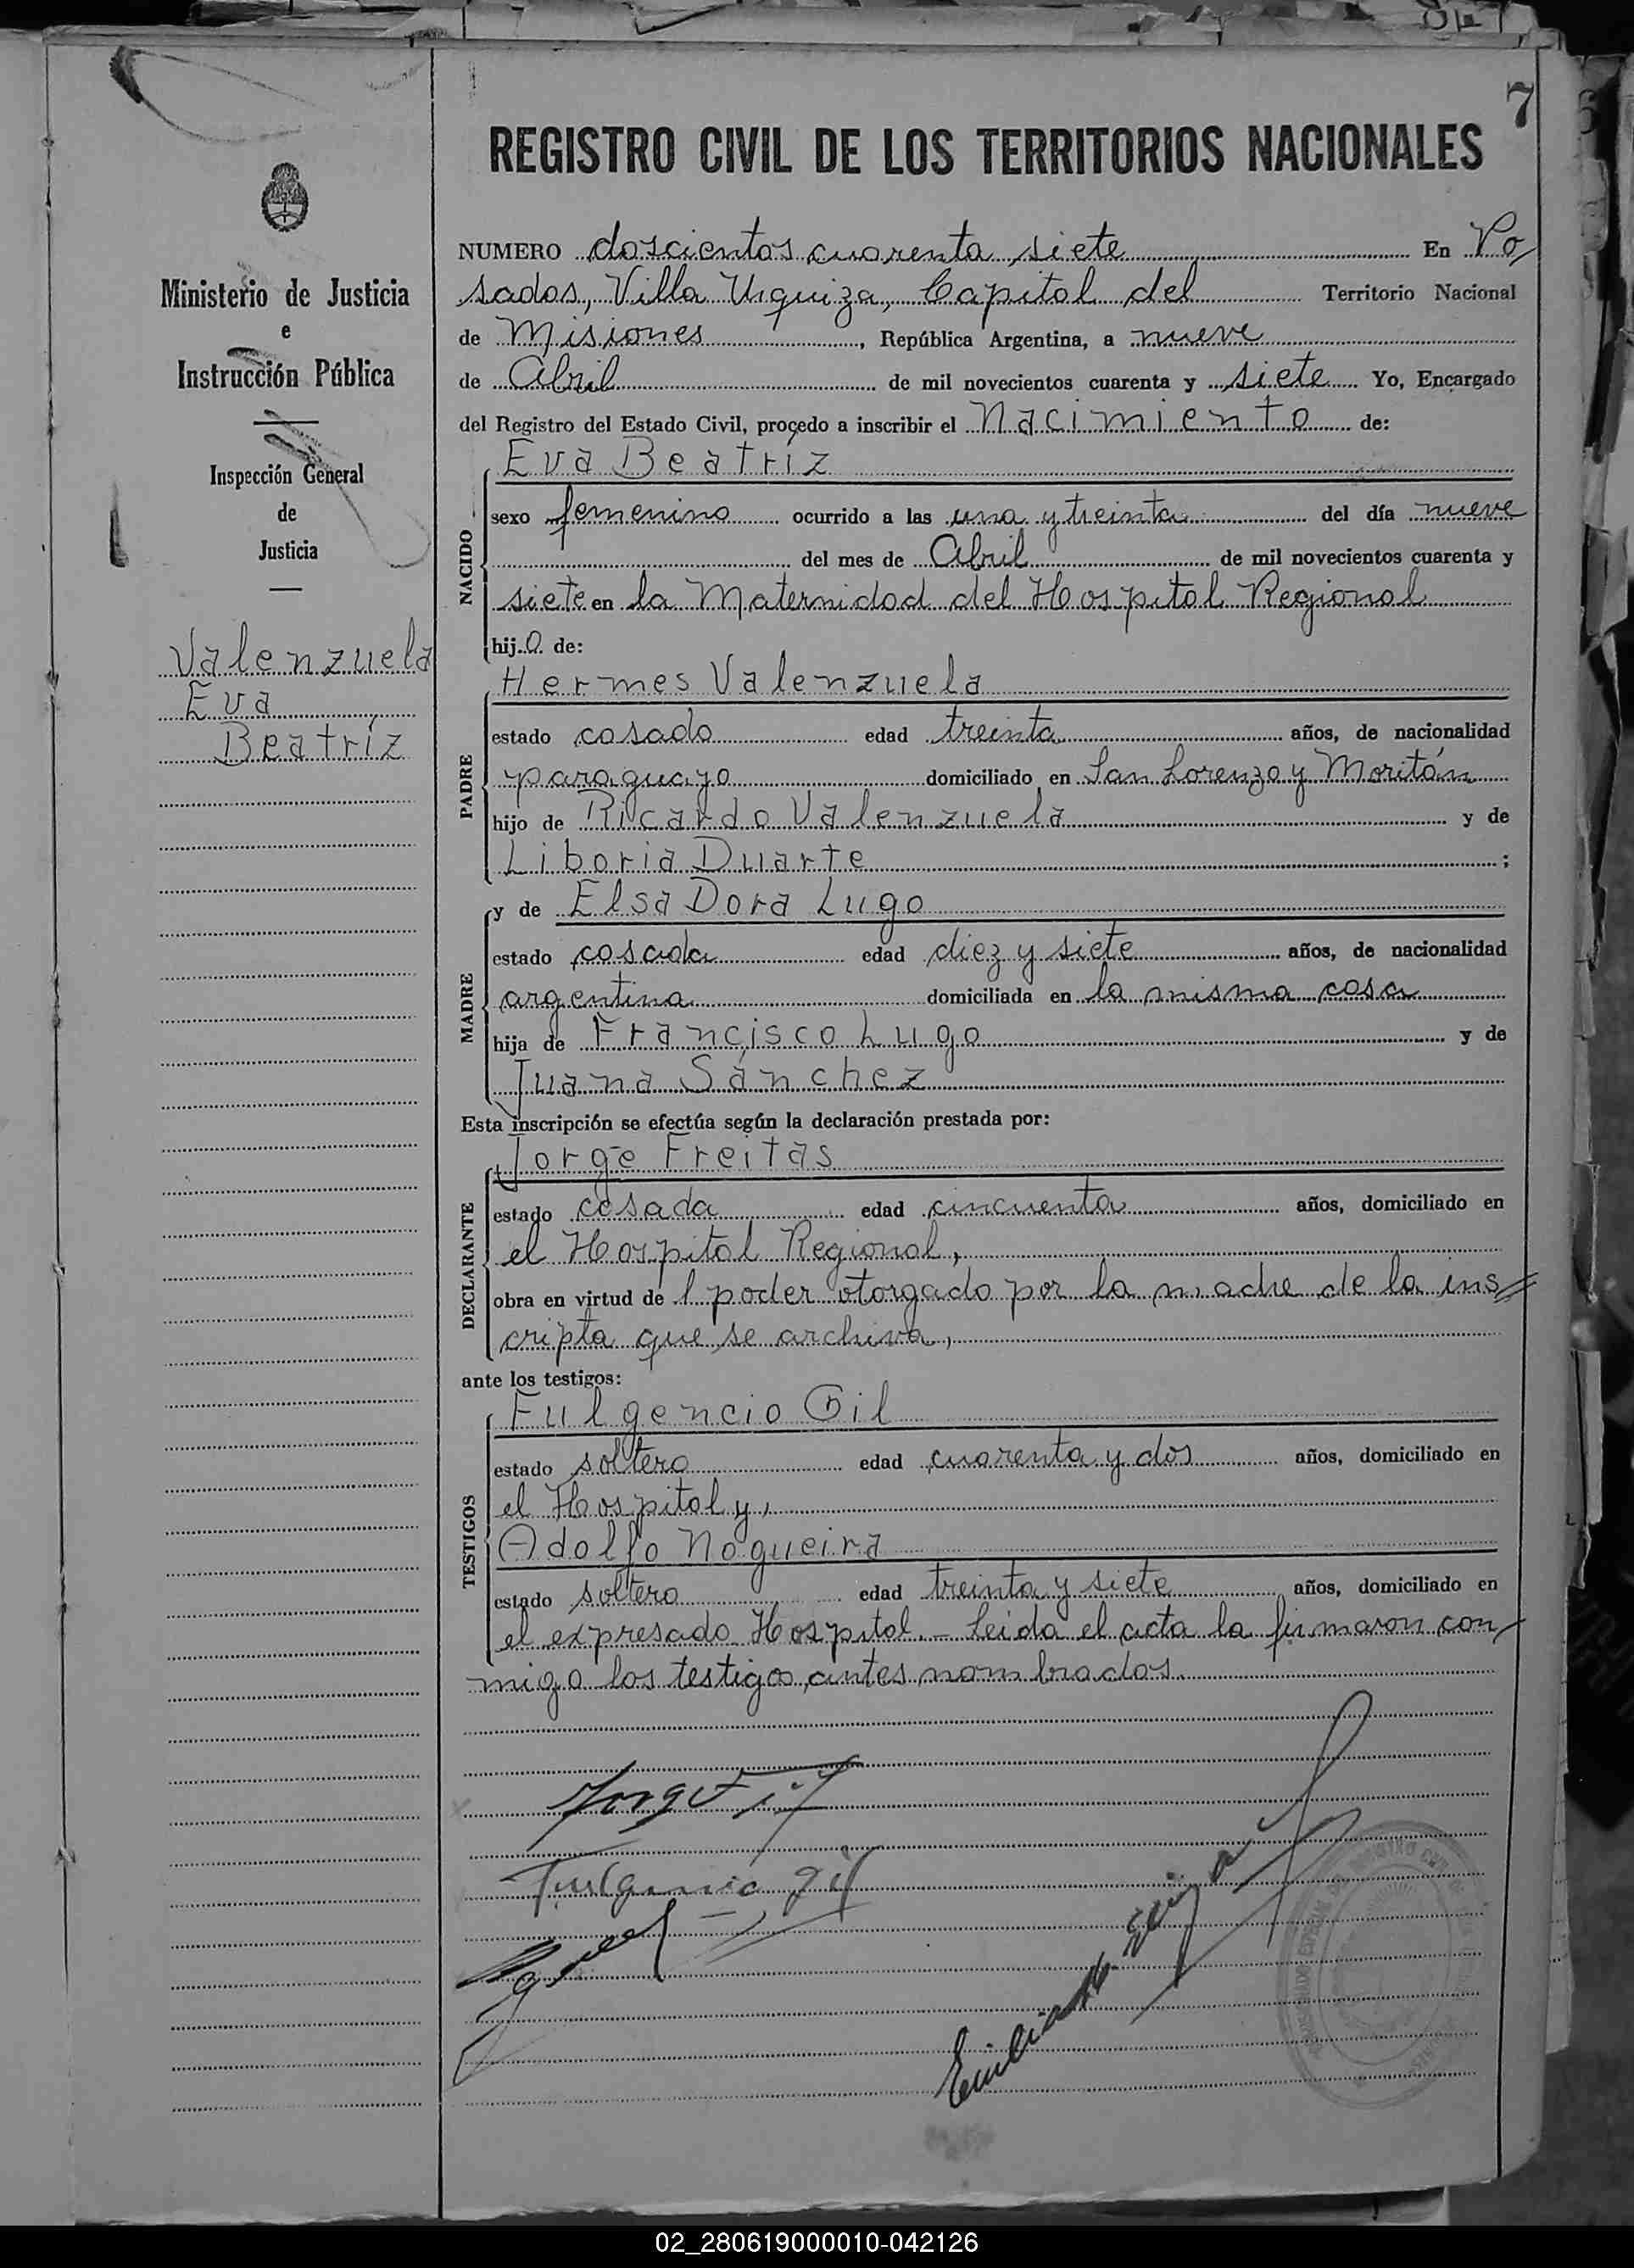 7
REGISTRO CIVIL DE LOS TERRITORIOS NACIONALES
Ministerio de Justicia
e
Instrucción Pública
Inspección General
de
Justicia
Valenzuela
Eva
Beatríz
NUMERO doscientos cuarenta siete En Po
sadas, Villa Urquiza, Capital del Territorio Nacional
de Misiones, República Argentina, a nueve
de Abril de mil novecientos cuarenta y siete Yo, Encargado
del Registro del Estado Civil, procedo a inscribir el Nacimiento de:
Eva Beatríz
NACIDO
sexo femenino ocurrido a las una y treinta del día nueve
del mes de Abril de mil novecientos cuarenta y
siete en la Maternidad del Hospital Regional
hija de:
Hermes Valenzuela
PADRE
estado casado edad treinta años, de nacionalidad
paraguayo domiciliado en San Lorenzo y Moritán
hijo de Ricardo Valenzuela y de
Liboria Duarte;
y de Elsa Dora Lugo
MADRE
estado casada edad diez y siete años, de nacionalidad
argentina domiciliada en la misma casa
hija de Francisco Lugo y de
Juana Sánchez
Esta inscripción se efectúa según la declaración prestada por:
Jorge Freitas
DECLARANTE
estado casada edad cincuenta años, domiciliado en
el Hospital Regional,
obra en virtud de l poder otorgado por la madre de la ins
cripta que se archiva,
ante los testigos:
Fulgencio Gil
TESTIGOS
estado soltero edad cuarenta y dos años, domiciliado en
el Hospital y,
Adolfo Nogueira
estado soltero edad treinta y siete años, domiciliado en
el expresado Hospital.- Leida el acta la firmaron con
migo los testigos antes nombrados.
Jorge
Fulgencio Gil
02_280619000010-042126